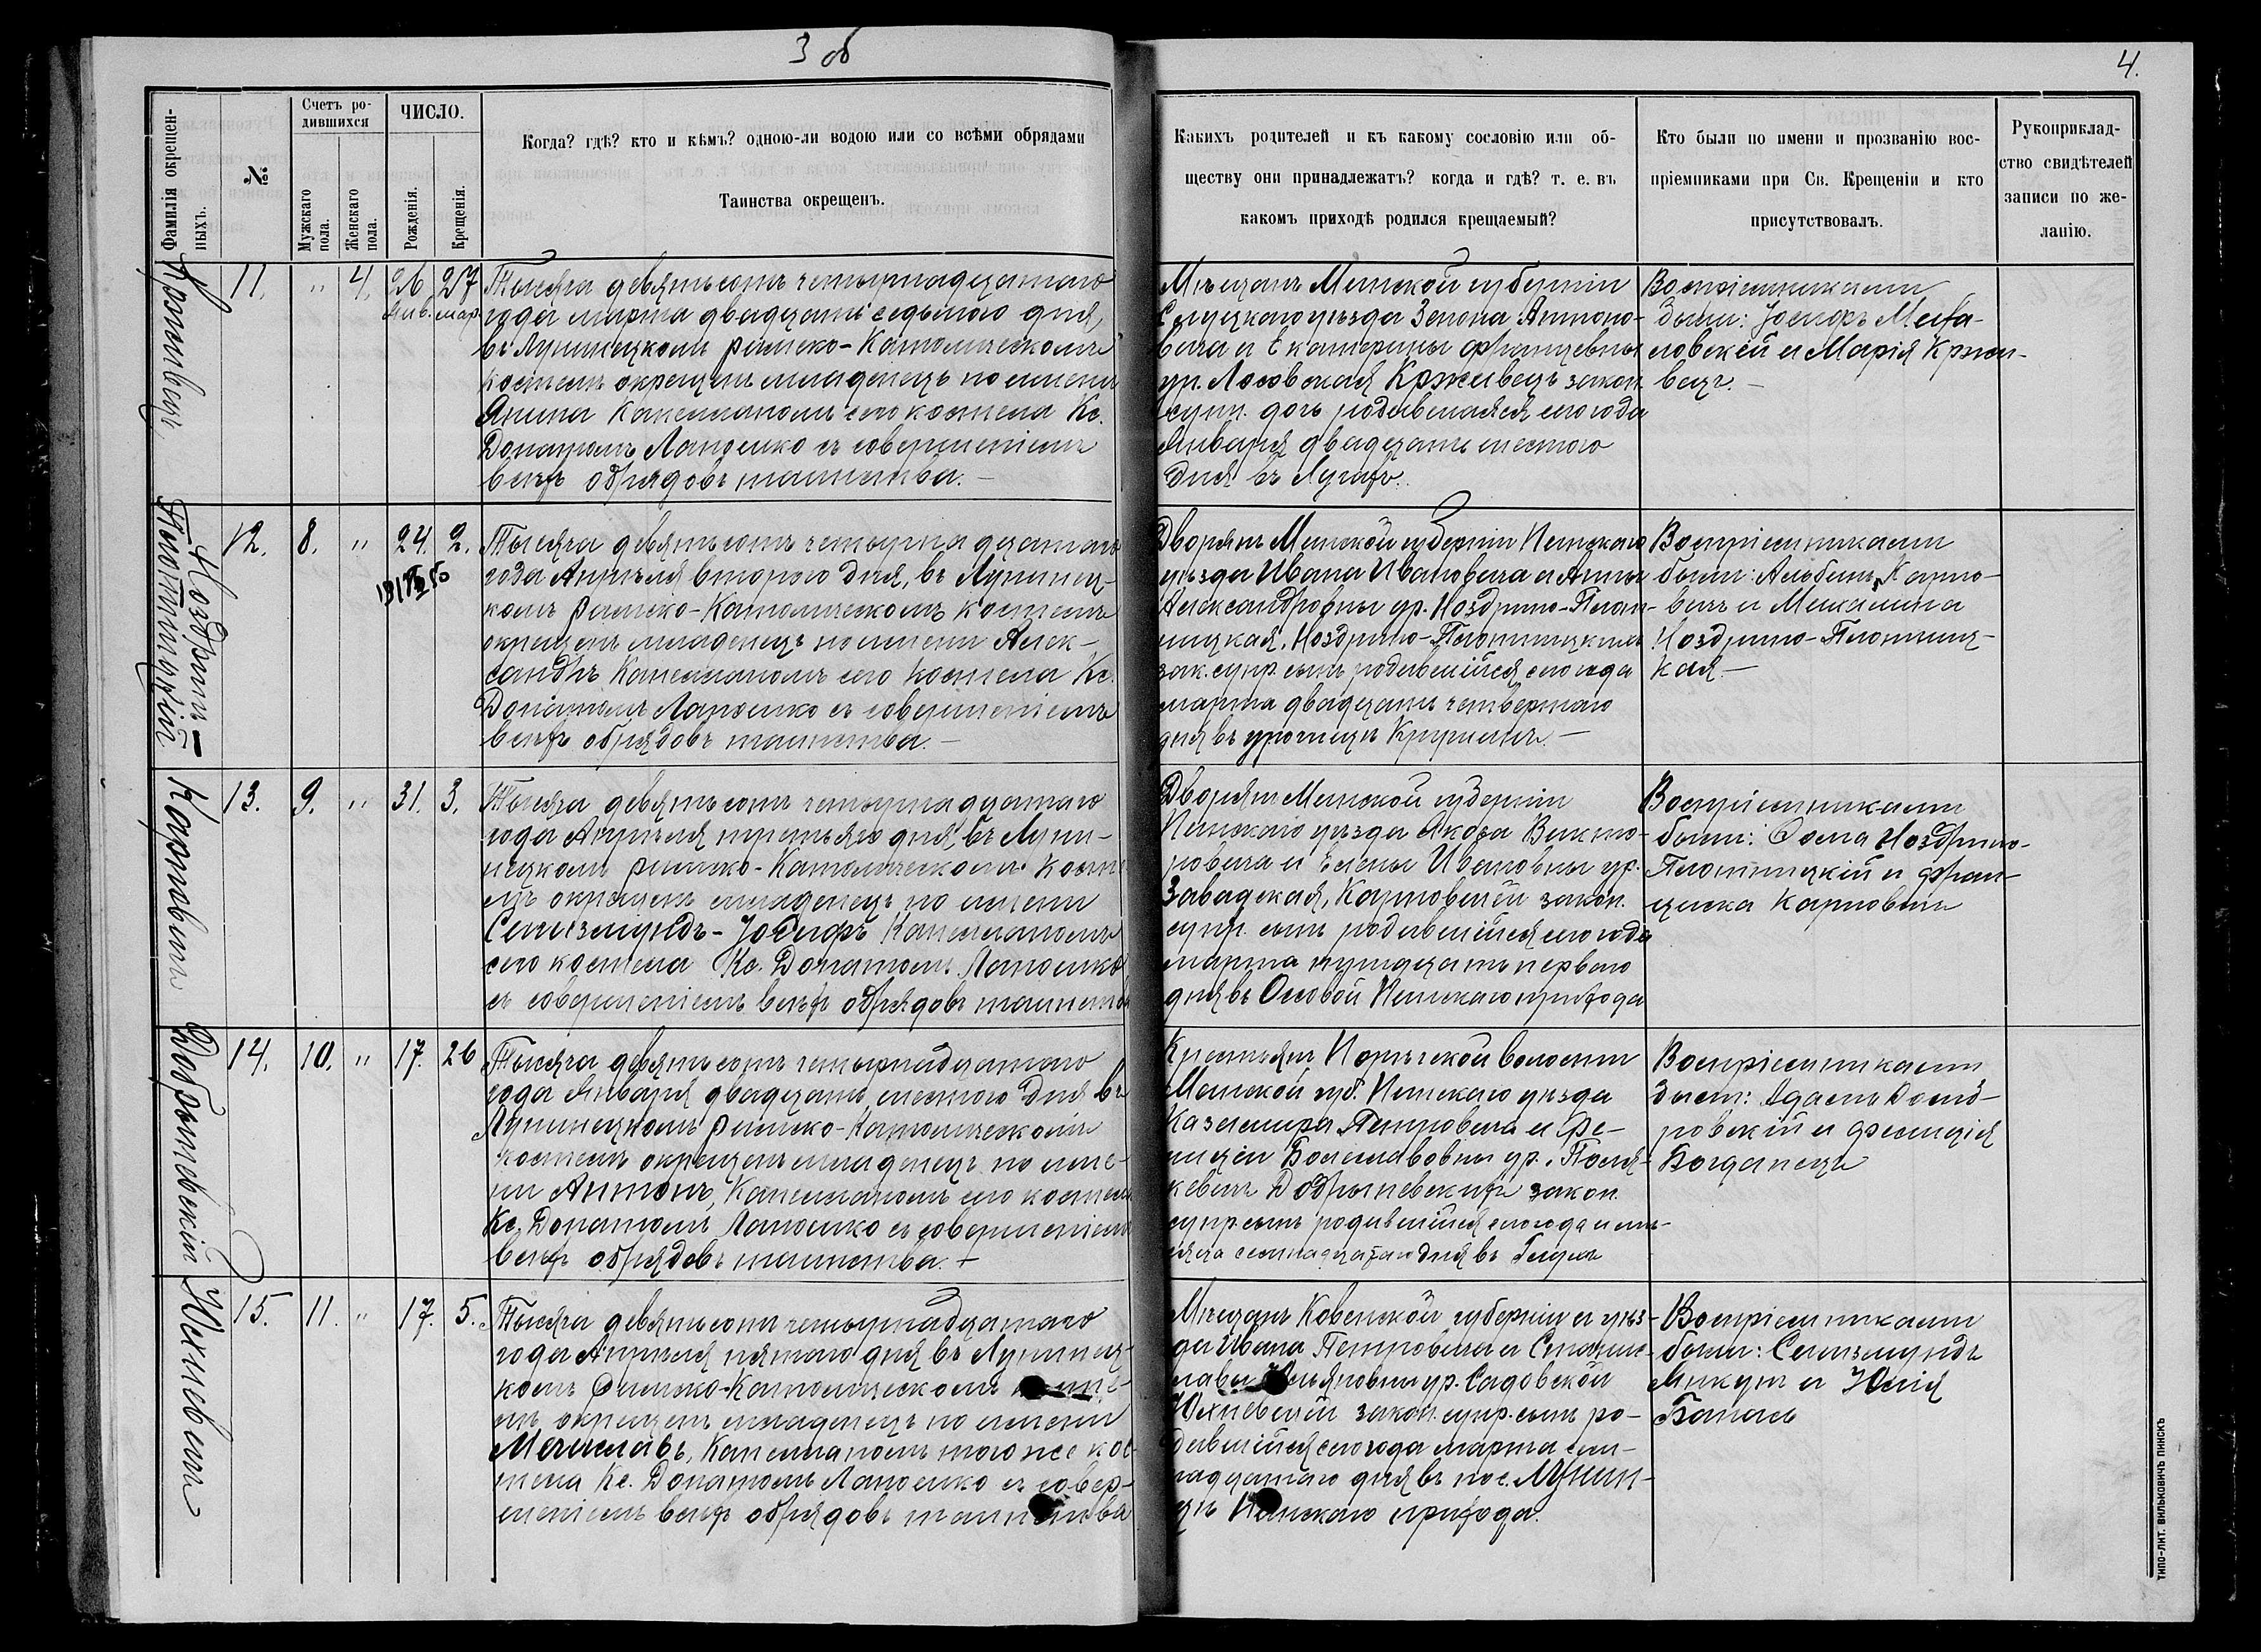 3 об
4.
Фамилія окрещен-
ныхъ.
№
Счетъ ро-
дившихся
Мужскаго
пола.
Женскаго
пола.
ЧИСЛО.
Рожденія.
Крещенія.
Когда? гдѣ? кто и кѣмъ? одною-ли водою или со всѣми обрядами
Таинства окрещенъ.
Какихъ родителей и къ какому сословію или об-
ществу они принадлежатъ? когда и гдѣ? т. е. въ
какомъ приходѣ родился крещаемый?
Кто были по имени и прозванію вос-
пріемниками при Св. Крещеніи и кто
присутствовалъ.
Рукоприклад-
ство свидѣтелей
записи по же-
ланію.
11. " 4. 26 27
Янв. мар.
Тысяча девятьсотъ четырнадцатаго
года марта двадцать седьмого дня,
въ Лунинецкомъ римско-Католическомъ
костелѣ окрещенъ младенецъ по имени
Янина Капелланомъ сего костела Кс.
Донатомъ Лапошко съ совершеніемъ
всѣхъ обрядовъ таинства.—
Мѣщанъ Минской губерніи
Слуцкаго уѣзда Зенона Антоно-
вича и Екатерины Францевны
ур. Лосовская Крживецъ закон.
супр. дочь родившаяся сего года
Января двадцать шестого
дня въ
Воспріемниками
были: Іосифъ
и Марія Кржи-
вецъ.—
Ноздринъ-
Плотницкій
12. 8. " 24. 2.
Тысяча девятьсотъ четырнадцатаго
года Апрѣля второго дня, въ Лунинец-
комъ римско-Католическомъ костелѣ
окрещенъ младенецъ по имени Алек-
сандръ Капелланомъ сего костела Кс.
Донатомъ Лапошко съ совершеніемъ
всѣхъ обрядовъ таинства.—
Дворянъ Минской губерніи Пинскаго
уѣзда Ивана Ивановича и Анны
Александровны ур. Ноздрино-Плот-
ницкая, Ноздрино-Плотницкихъ
зак. супр. сынъ родившійся сего года
марта двадцать четвертаго
дня въ урочищѣ
Воспріемниками
были: Альбинъ Карпо-
вичъ и Михалина
Ноздрино-Плотниц-
кая.—
Карповичъ
13. 9. " 31. 3.
Тысяча девятьсотъ четырнадцатаго
года Апрѣля третьяго дня въ Луни-
нецкомъ римско-Католическомъ косте
лѣ окрещенъ младенецъ по имени
Сигизмундъ-Іосифъ Капелланомъ
сего костела Кс. Донатомъ Лапошко
съ совершеніемъ всѣхъ обрядовъ таинства
Дворянъ Минской губерніи
Пинскаго уѣзда Якова Викто-
ровича и Елены Ивановны ур.
Завадская, Карповичей закон.
супр. сынъ родившійся сего года
марта тридцать перваго
дня въ Осовой Пинскаго прихода
Воспріемниками
были: Ѳома Ноздрино-
Плотницкій и Фран-
циска Карповичъ
Добрыневскій
14. 10. " 17. 26
Тысяча девятьсотъ четырнадцатаго
года Января двадцать шестого дня въ
Лунинецкомъ римско-Католическомъ
костелѣ окрещенъ младенецъ по име-
ни Антонъ, Капелланомъ сего костела
Кс. Донатомъ Лапошко съ совершеніемъ
всѣхъ обрядовъ таинства.—
Крестьянъ волости
Минской губ. Пинскаго уѣзда
Казимира Петровича и Фе-
лиціи Болеславовны ур.
Добрыневскихъ закон.
супр. сынъ родившійся сего года и мѣ-
сяца семнадцатаго дня въ
Воспріемниками
были: Адамъ
и Фелиція
Богданецъ
Юхневичъ
15. 11. " 17. 5.
Тысяча девятьсотъ четырнадцатаго
года Апрѣля пятаго дня въ Лунинец-
комъ Римско-Католическомъ косте-
лѣ окрещенъ младенецъ по имени
Мечиславъ, Капелланомъ того же кос-
тела Кс. Донатомъ Лапошко съ совер-
шеніемъ всѣхъ обрядовъ таинства
Мѣщанъ Ковенской губерніи и уѣз-
да Ивана Петровича и Станис-
лавы ур. Садовской
Юхневичей закон. супр. сынъ ро-
дившійся сего года марта сем-
надцатаго дня въ пос. Лунин-
цѣ Пинскаго прихода.
Воспріемниками
были: Сигизмундъ
Микутъ и Юлія
Банась
ТИПО-ЛИТ. ВИЛЬКОВИЧЪ ПИНСКЪ